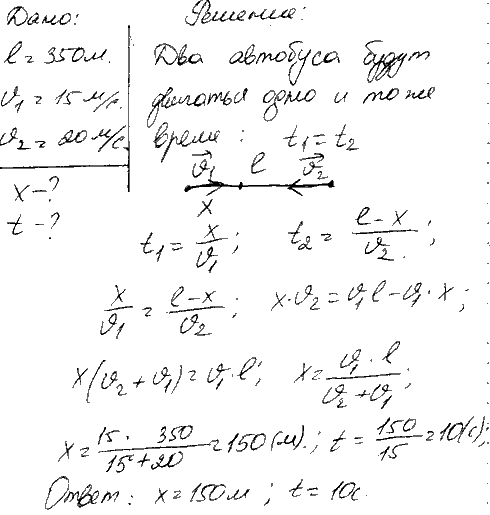 Дано:
l = 350м.
υ₁ = 15 м/с.
υ₂ = 20м/с.
x-?
t-?
Решение:
Два автобуса будут
двигаться одно и тоже
время: t₁ = t₂
υ₁ l υ₂
x
t₁ = x/υ₁; t₂ = (l-x)/υ₂;
x/υ₁ = (l-x)/υ₂; x·υ₂ = υ₁l - υ₁·x;
x(υ₂ + υ₁) = υ₁·l; x = (υ₁·l)/(υ₂+υ₁);
x = (15 · 350)/(15+20) = 150(м).; t = 150/15 = 10(с);
Ответ: x = 150м; t = 10с.